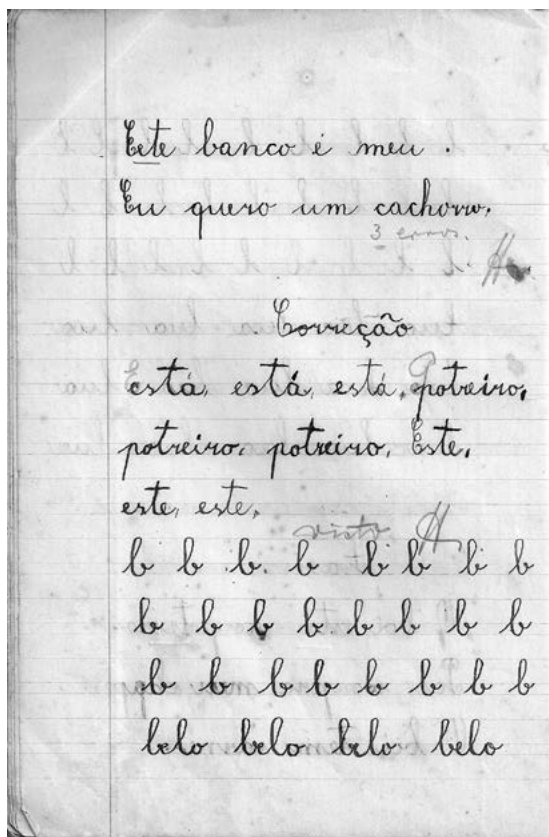 Este banco é meu.
Eu quero um cachorro.
3 erros.
Correção
está, está, está, potreiro,
potreiro, potreiro, Este,
este, este,
visto
b b b b b b b b
b b b b b b b b
b b b b b b b b
belo belo belo belo